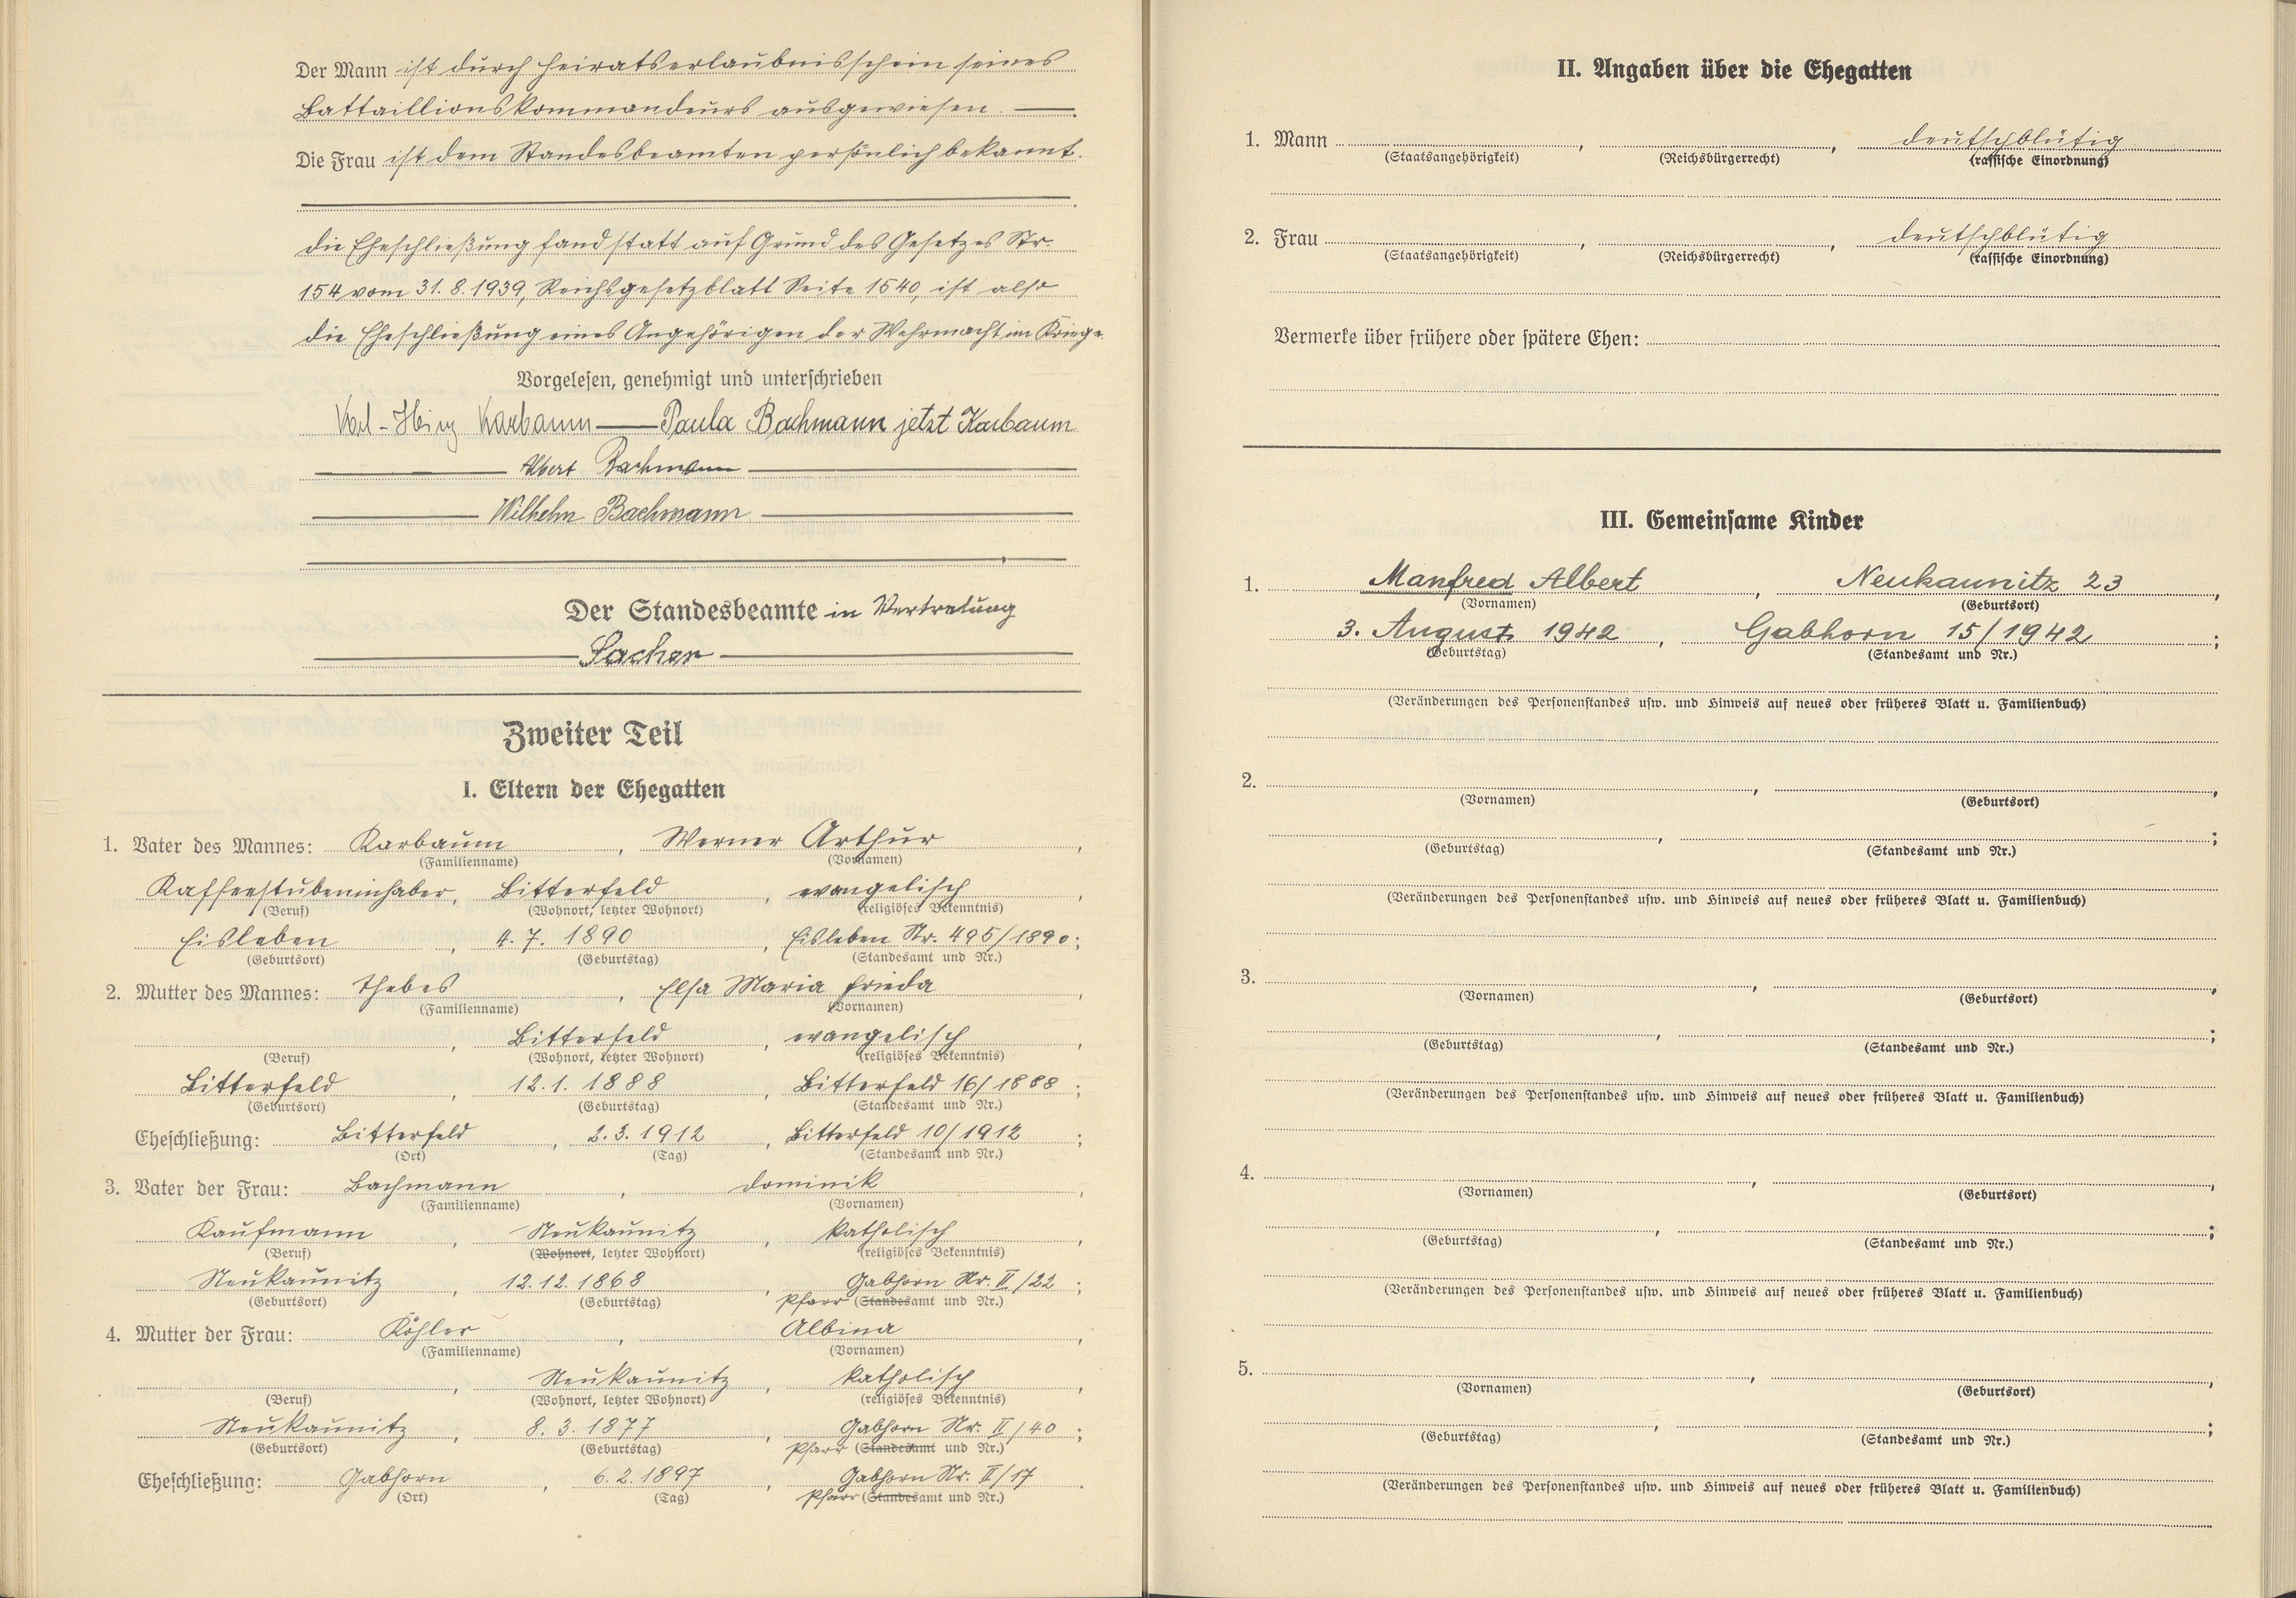 Der Mann ist durch Heiratserlaubnisschein seines
Battaillionskommandeurs ausgewiesen.
Die Frau ist dem Standesbeamten persönlich bekannt.
Die Eheschließung fand statt auf Grund des Gesetzes Nr.
154 vom 31.8.1939, Reichsgesetzblatt Seite 1540, ist also
die Eheschließung eines Angehörigen der Wehrmacht im Kriege.
Vorgelesen, genehmigt und unterschrieben
Karl-Heinz Karbaum — Paula Bachmann jetzt Karbaum
Albert Bachmann
Wilhelm Bachmann
Der Standesbeamte in Vertretung
Sacher
Zweiter Teil
I. Eltern der Ehegatten
1. Vater des Mannes: Karbaum, Werner Arthur,
(Familienname) (Vornamen)
Kaffeestubeninhaber, Bitterfeld, evangelisch,
(Beruf) (Wohnort, letzter Wohnort) (religiöses Bekenntnis)
Eisleben, 4.7.1890, Eisleben Nr. 495/1890;
(Geburtsort) (Geburtstag) (Standesamt und Nr.)
2. Mutter des Mannes: Thebes, Elsa Maria Frieda,
(Familienname) (Vornamen)
, Bitterfeld, evangelisch,
(Beruf) (Wohnort, letzter Wohnort) (religiöses Bekenntnis)
Bitterfeld, 12.1.1888, Bitterfeld 16/1888;
(Geburtsort) (Geburtstag) (Standesamt und Nr.)
Eheschließung: Bitterfeld, 2.3.1912, Bitterfeld 10/1912;
(Ort) (Tag) (Standesamt und Nr.)
3. Vater der Frau: Bachmann, Dominik,
(Familienname) (Vornamen)
Kaufmann, Neukaunitz, katholisch,
(Beruf) (Wohnort, letzter Wohnort) (religiöses Bekenntnis)
Neukaunitz, 12.12.1868, Gabhorn Nr. II/22;
(Geburtsort) (Geburtstag) Pfarr (Standesamt und Nr.)
4. Mutter der Frau: Köhler, Albina,
(Familienname) (Vornamen)
, Neukaunitz, katholisch,
(Beruf) (Wohnort, letzter Wohnort) (religiöses Bekenntnis)
Neukaunitz, 8.3.1877, Gabhorn Nr. II/40;
(Geburtsort) (Geburtstag) Pfarr (Standesamt und Nr.)
Eheschließung: Gabhorn, 6.2.1897, Gabhorn Nr. II/17.
(Ort) (Tag) Pfarr (Standesamt und Nr.)
II. Angaben über die Ehegatten
1. Mann , , deutschblütig
(Staatsangehörigkeit) (Reichsbürgerrecht) (rassische Einordnung)
2. Frau , , deutschblütig
(Staatsangehörigkeit) (Reichsbürgerrecht) (rassische Einordnung)
Vermerke über frühere oder spätere Ehen:
III. Gemeinsame Kinder
1. Manfred Albert, Neukaunitz 23,
(Vornamen) (Geburtsort)
3. August 1942, Gabhorn 15/1942;
(Geburtstag) (Standesamt und Nr.)
(Veränderungen des Personenstandes usw. und Hinweis auf neues oder früheres Blatt u. Familienbuch)
2. , ,
(Vornamen) (Geburtsort)
, ;
(Geburtstag) (Standesamt und Nr.)
(Veränderungen des Personenstandes usw. und Hinweis auf neues oder früheres Blatt u. Familienbuch)
3. , ,
(Vornamen) (Geburtsort)
, ;
(Geburtstag) (Standesamt und Nr.)
(Veränderungen des Personenstandes usw. und Hinweis auf neues oder früheres Blatt u. Familienbuch)
4. , ,
(Vornamen) (Geburtsort)
, ;
(Geburtstag) (Standesamt und Nr.)
(Veränderungen des Personenstandes usw. und Hinweis auf neues oder früheres Blatt u. Familienbuch)
5. , ,
(Vornamen) (Geburtsort)
, ;
(Geburtstag) (Standesamt und Nr.)
(Veränderungen des Personenstandes usw. und Hinweis auf neues oder früheres Blatt u. Familienbuch)